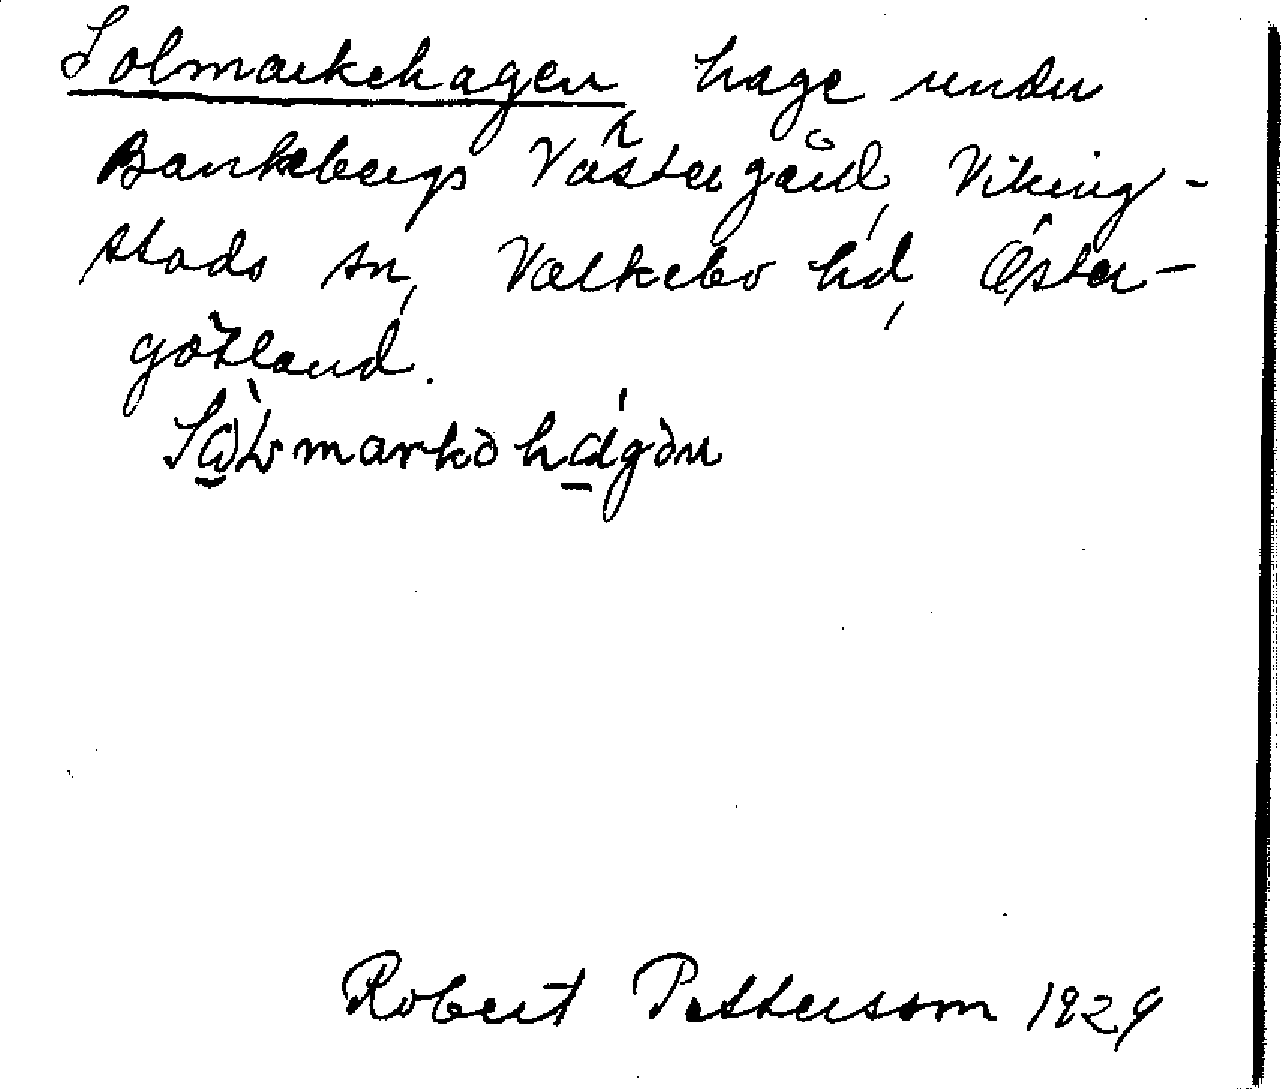 Solmarkehagen, hage under
Bankebergs Västergård, Viking-
stads sn, Valkebo hd, Öster-
götland.
Robert Pettersson 1929